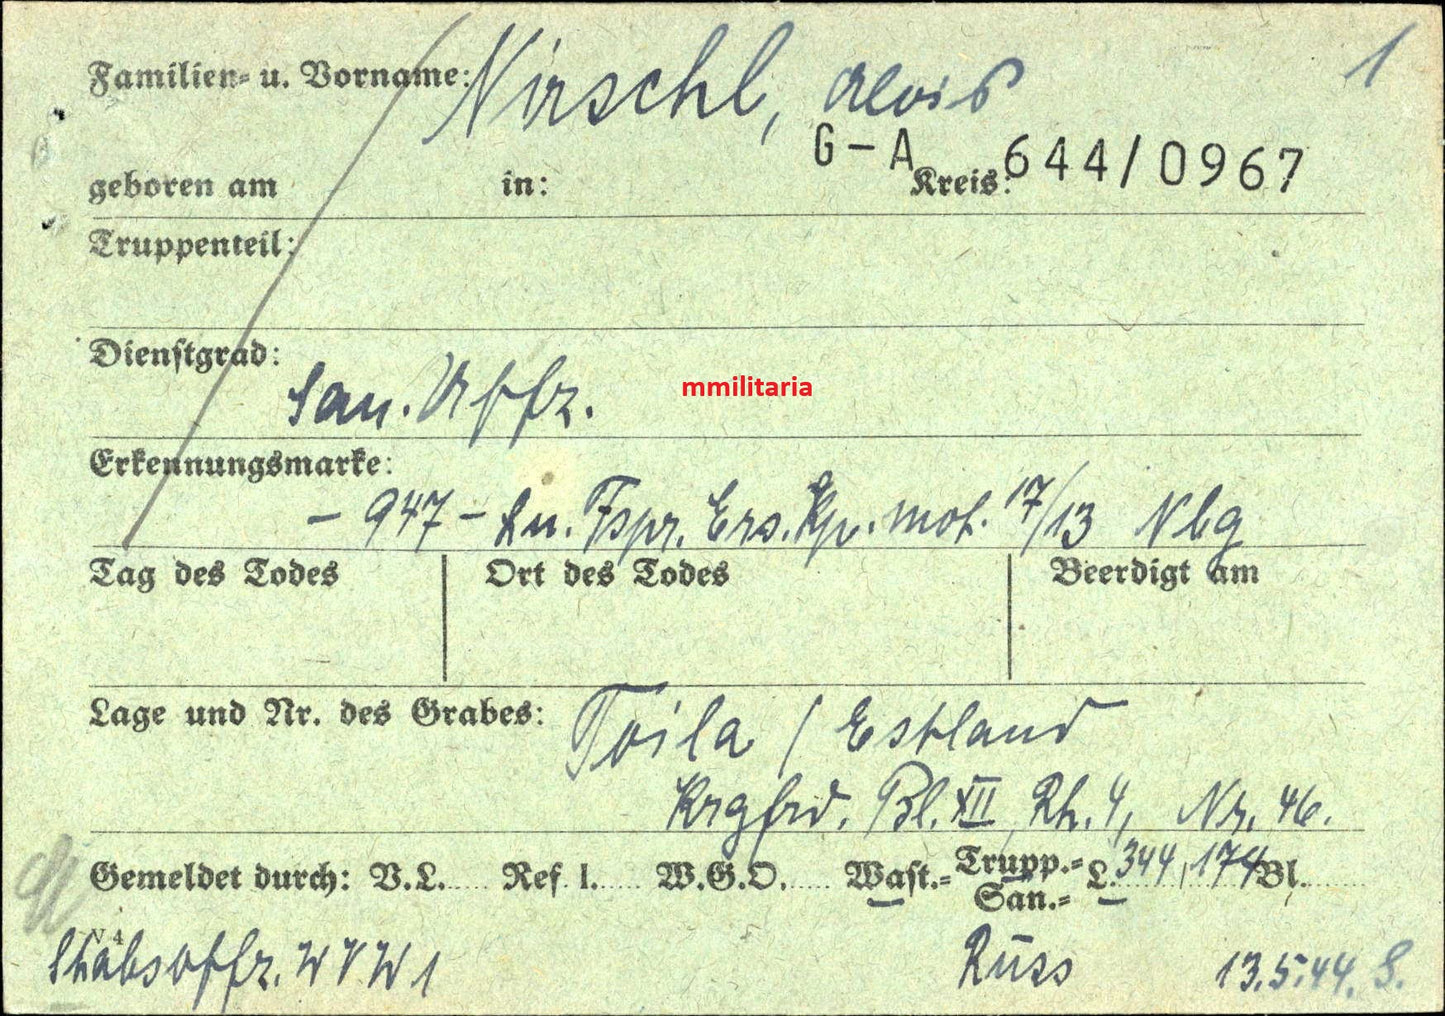 Familien- u. Vorname: Nirschl, Alois 1
G-A 644/0967
geboren am in: Kreis:
Truppenteil:
Dienstgrad:
San. Uffz.
mmilitaria
Erkennungsmarke:
- 947 - Ln. Fspr. Ers. Kp. mot. 17/13 Nbg
Tag des Todes Ort des Todes Beerdigt am
Lage und Nr. des Grabes: Toila / Estland
Krgfrd. Bl. XII, Rh. 4, Nr. 46.
Gemeldet durch: V.L. Ref. I. W.G.O. Wast.= Trupp.= San.= L. 344, 174 Bl.
V 4
Stabsoffz. W V W 1 Russ 13.5.44. S.